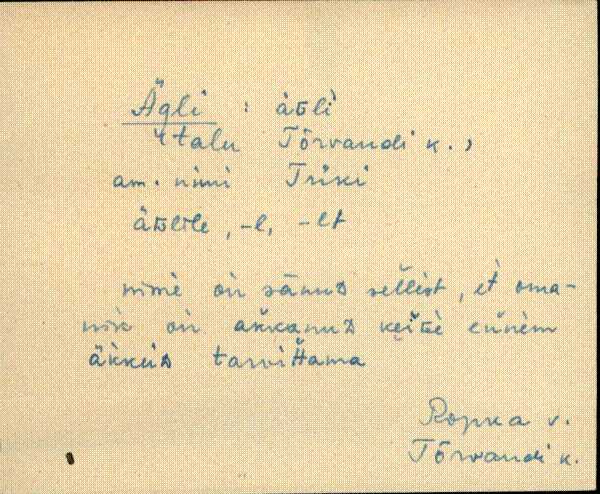 Ägli : äɢli
talu Tõrvandi k.,
am. nimi Triki
äɢlile, -l, -lt
nime on sänuᴅ sellest, et oma-
nik on akkanuᴅ keike ennem
äkkeiᴅ tarvittama
Ropka v.
Tõrvandi k.